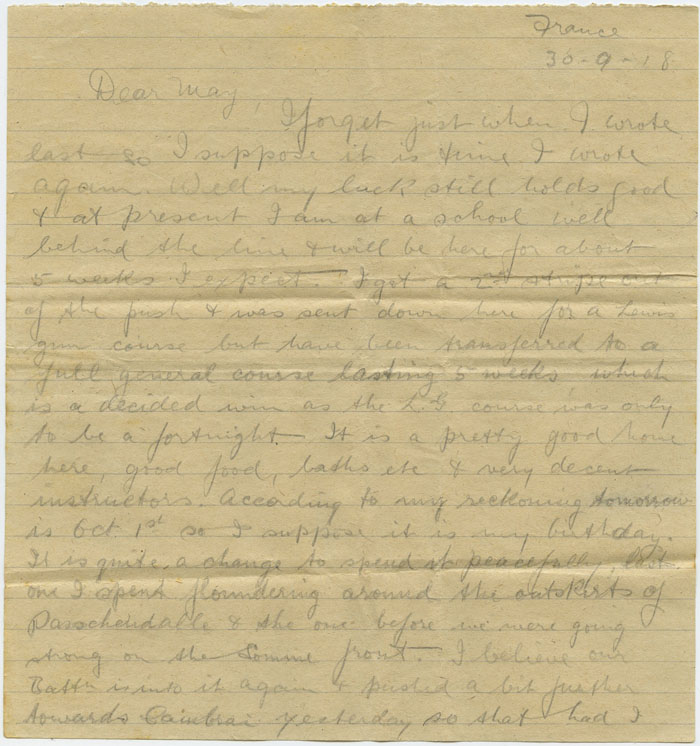 France
30-9-18
Dear May,
I forget just when I wrote
last so I suppose it is time I wrote
again. Well my luck still holds good
& at present I am at a school well
behind the line & will be here for about
5 weeks I expect. I got a 2nd stripe out
of the push & was sent down here for a Lewis
gun course but have been transferred to a
full general course lasting 5 weeks which
is a decided win as the L.G course was only
to be a fortnight. It is a pretty good home
here, good food, baths etc & very decent
instructors. According to my reckoning tomorrow
is Oct 1st so I suppose it is my birthday.
It is quite a change to spend it peacefully, last
one I spent floundering around the outskirts of
Passchendable & the one before we were going
strong on the Somme front. I believe our
Battn is into it again & pushed a bit further
towards Cambrai yesterday so that had I